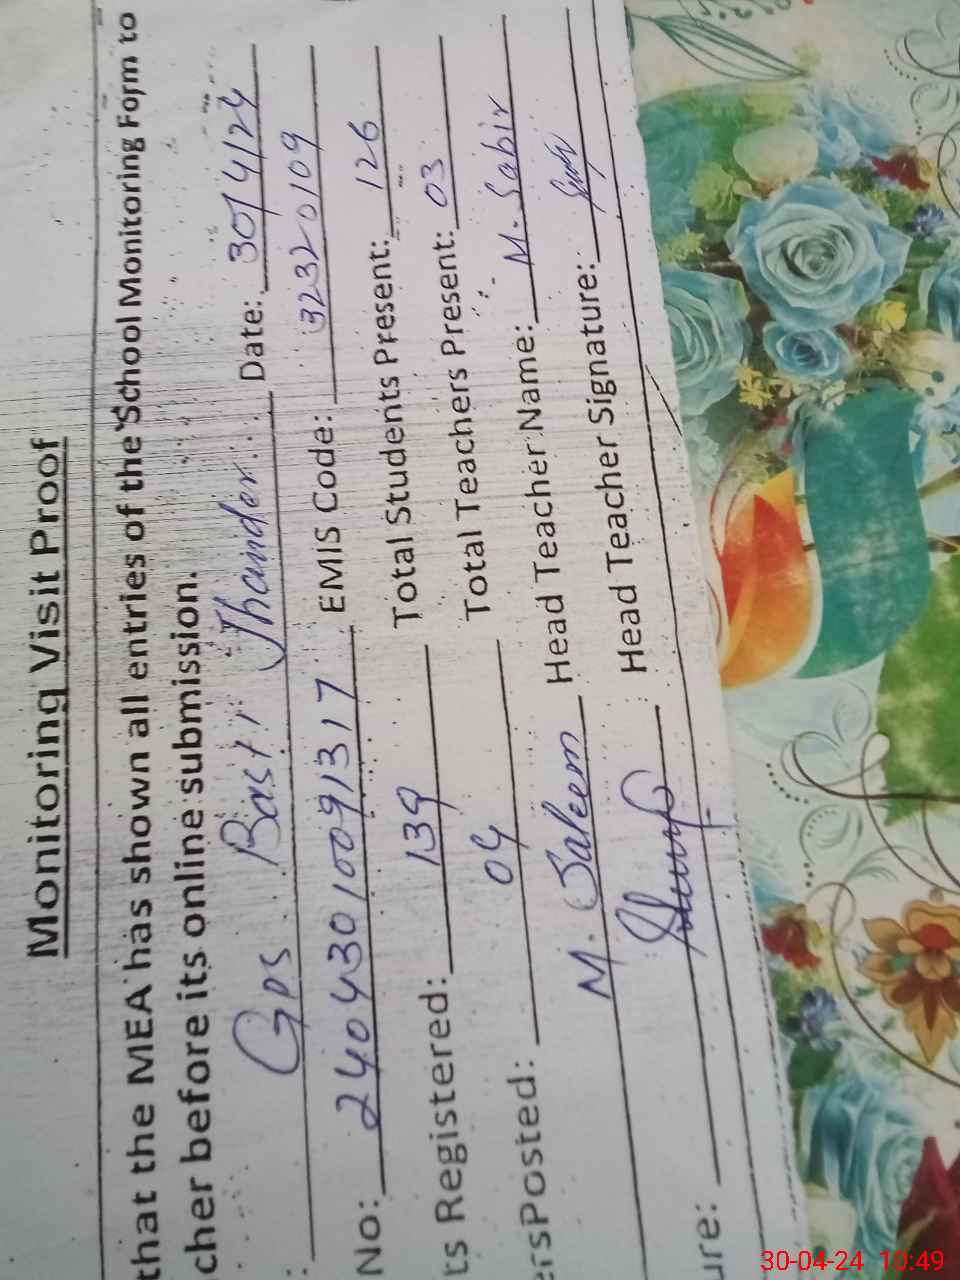 Monitoring Visit Proof
that the MEA has shown all entries of the School Monitoring Form to
cher before its online submission.
: Gps Basti Jhander Date: 30/4/24
No: 24043010091317 EMIS Code: 32320109
ts Registered: 139 Total Students Present: 126
ersPosted: 04 Total Teachers Present: 03
M. Saleem Head Teacher Name: M. Sabir
ure: Head Teacher Signature:
30-04-24 10:49